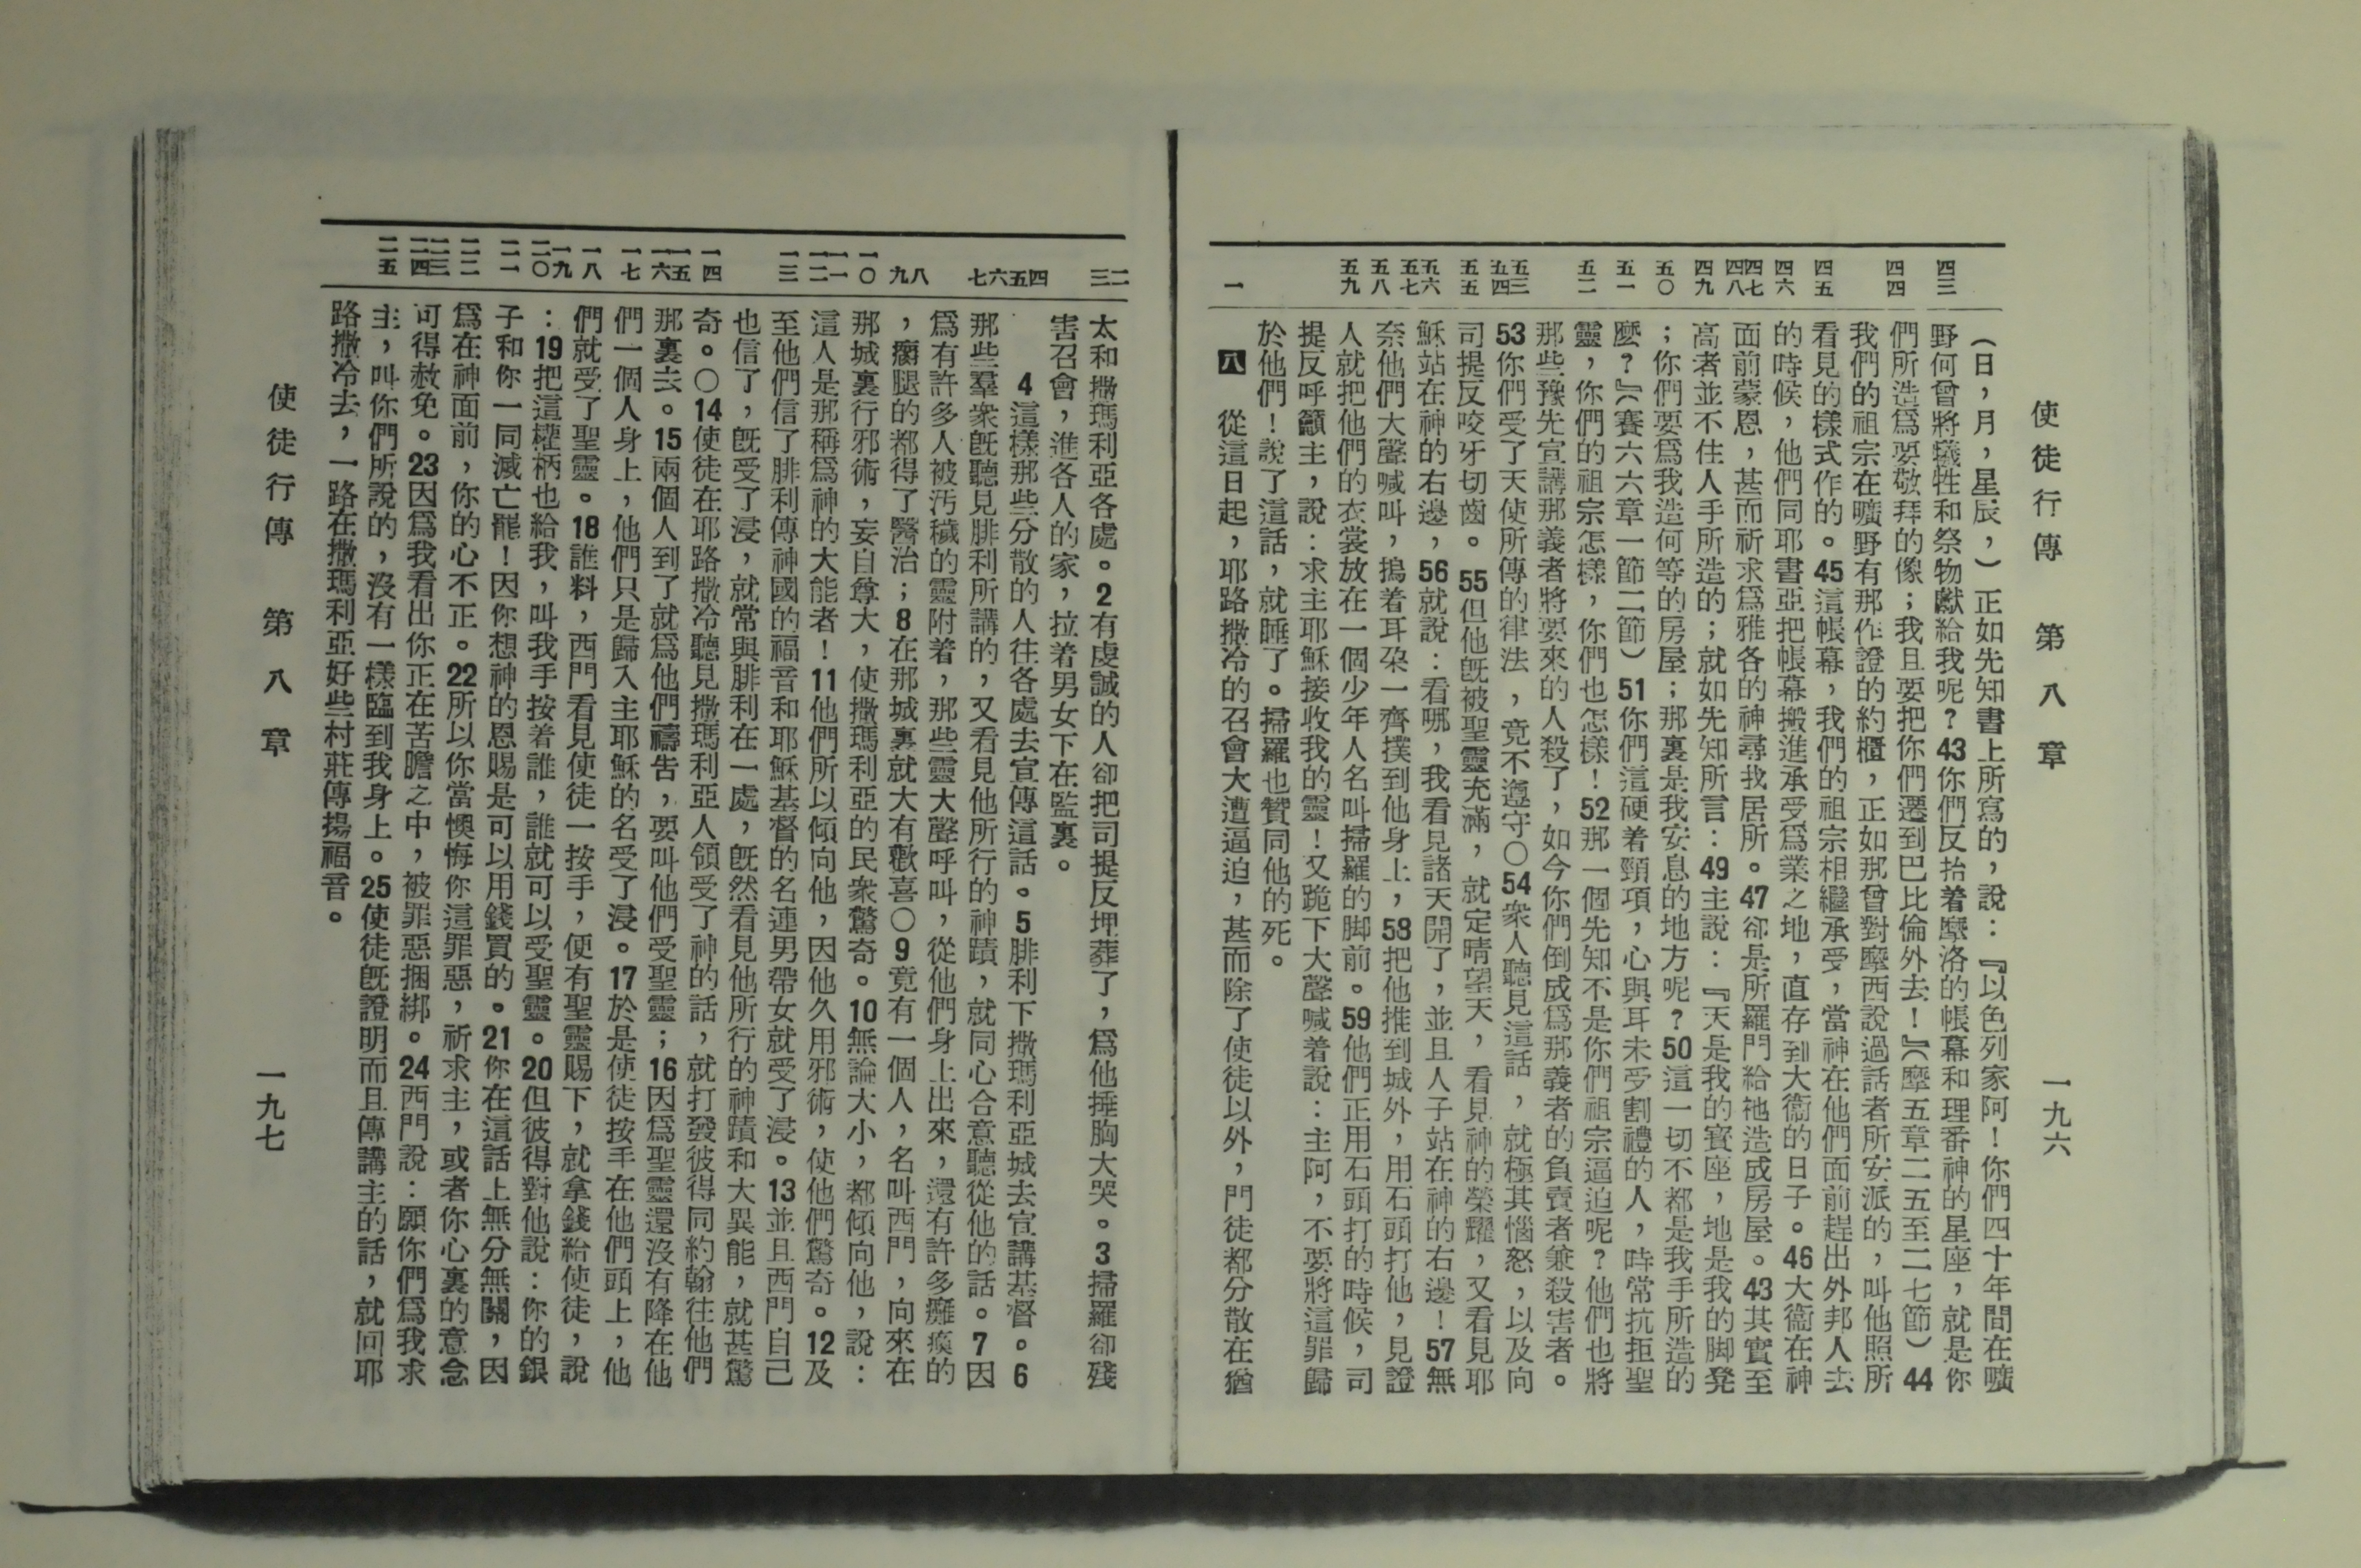 使徒行傳　第八章　一九六
四三　四四　四五　四六　四七　四八　四九　五〇　五一　五二　五三　五四　五五　五六　五七　五八　五九　一
（日，月，星辰，）正如先知書上所寫的，說：『以色列家阿！你們四十年間在曠
野何曾將犧牲和祭物獻給我呢？43你們反抬着摩洛的帳幕和理番神的星座，就是你
們所造爲要敬拜的像；我且要把你們遷到巴比倫外去！』（摩五章二五至二七節）44
我們的祖宗在曠野有那作證的約櫃，正如那曾對摩西說過話者所安派的，叫他照所
看見的樣式作的。45這帳幕，我們的祖宗相繼承受，當神在他們面前趕出外邦人去
的時候，他們同耶書亞把帳幕搬進承受爲業之地，直存到大衞的日子。46大衞在神
面前蒙恩，甚而祈求爲雅各的神尋找居所。47卻是所羅門給祂造成房屋。43其實至
高者並不住人手所造的；就如先知所言：49主說：『天是我的寶座，地是我的脚凳
；你們要爲我造何等的房屋；那裏是我安息的地方呢？50這一切不都是我手所造的
麼？』（賽六六章一節二節）51你們這硬着頸項，心與耳未受割禮的人，時常抗拒聖
靈，你們的祖宗怎樣，你們也怎樣！52那一個先知不是你們祖宗逼迫呢？他們也將
那些豫先宣講那義者將要來的人殺了，如今你們倒成爲那義者的負賣者兼殺害者。
53你們受了天使所傳的律法，竟不遵守〇54衆人聽見這話，就極其惱怒，以及向
司提反咬牙切齒。55但他旣被聖靈充滿，就定睛望天，看見神的榮耀，又看見耶
穌站在神的右邊，56就說：看哪，我看見諸天開了，並且人子站在神的右邊！57無
奈他們大聲喊叫，摀着耳朶一齊撲到他身上，58把他推到城外，用石頭打他，見證
人就把他們的衣裳放在一個少年人名叫掃羅的脚前。59他們正用石頭打的時候，司
提反呼籲主，說：求主耶穌接收我的靈！又跪下大聲喊着說：主阿，不要將這罪歸
於他們！說了這話，就睡了。掃羅也贊同他的死。
八　從這日起，耶路撒冷的召會大遭逼迫，甚而除了使徒以外，門徒都分散在猶
二　三　四　五　六　七　八　九　一〇　一一　一二　一三　一四　一五　一六　一七　一八　一九　二〇　二一　二二　二三　二四　二五
太和撒瑪利亞各處。2有虔誠的人卻把司提反埋葬了，爲他捶胸大哭。3掃羅卻殘
害召會，進各人的家，拉着男女下在監裏。
4這樣那些分散的人往各處去宣傳這話。5腓利下撒瑪利亞城去宣講基督。6
那些羣衆旣聽見腓利所講的，又看見他所行的神蹟，就同心合意聽從他的話。7因
爲有許多人被汚穢的靈附着，那些靈大聲呼叫，從他們身上出來，還有許多癱瘓的
，瘸腿的都得了醫治；8在那城裏就大有歡喜〇9竟有一個人，名叫西門，向來在
那城裏行邪術，妄自尊大，使撒瑪利亞的民衆驚奇。10無論大小，都傾向他，說：
這人是那稱爲神的大能者！11他們所以傾向他，因他久用邪術，使他們驚奇。12及
至他們信了腓利傳神國的福音和耶穌基督的名連男帶女就受了浸。13並且西門自己
也信了，旣受了浸，就常與腓利在一處，旣然看見他所行的神蹟和大異能，就甚驚
奇。〇14使徒在耶路撒冷聽見撒瑪利亞人領受了神的話，就打發彼得同約翰往他們
那裏去。15兩個人到了就爲他們禱告，要叫他們受聖靈；16因爲聖靈還沒有降在他
們一個人身上，他們只是歸入主耶穌的名受了浸。17於是使徒按手在他們頭上，他
們就受了聖靈。18誰料，西門看見使徒一按手，便有聖靈賜下，就拿錢給使徒，說
：19把這權柄也給我，叫我手按着誰，誰就可以受聖靈。20但彼得對他說：你的銀
子和你一同滅亡罷！因你想神的恩賜是可以用錢買的。21你在這話上無分無關，因
爲在神面前，你的心不正。22所以你當懊悔你這罪惡，祈求主，或者你心裏的意念
可得赦免。23因爲我看出你正在苦膽之中，被罪惡捆綁。24西門說：願你們爲我求
主，叫你們所說的，沒有一樣臨到我身上。25使徒旣證明而且傳講主的話，就回耶
路撒冷去，一路在撒瑪利亞好些村莊傳揚福音。
使徒行傳　第八章　一九七